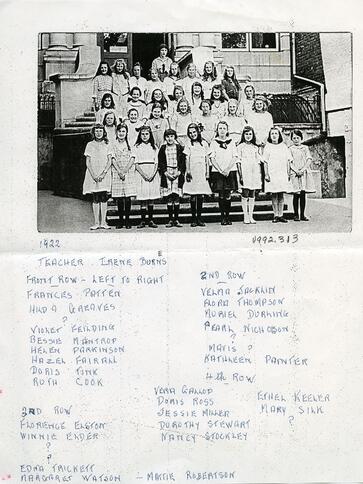 1922
1992.313
TEACHER - IRENE BURNS
E
FRONT ROW - LEFT TO RIGHT
FRANCES PATTEN
HILDA GREAVES
?
VIOLET FEILDING
BESSIE MANTROP
HELEN PARKINSON
HAZEL FAIRALL
DORIS TONK
RUTH COOK
2ND ROW
VELMA JACKLIN
FLORA THOMPSON
MURIEL DURLING
PEARL NICHOLSON
?
MAVIS ?
KATHLEEN PAYNTER
3RD ROW
FLORENCE ELSTON
WINNIE ELDER
?
?
EDNA TRICKETT
MARGARET WATSON - MATIE ROBERTSON
4TH ROW
VERA GALLOP
DORIS ROSS
JESSIE MILLER
DOROTHY STEWART
NANCY STOCKLEY
ETHEL KEELER
MARY SILK
?